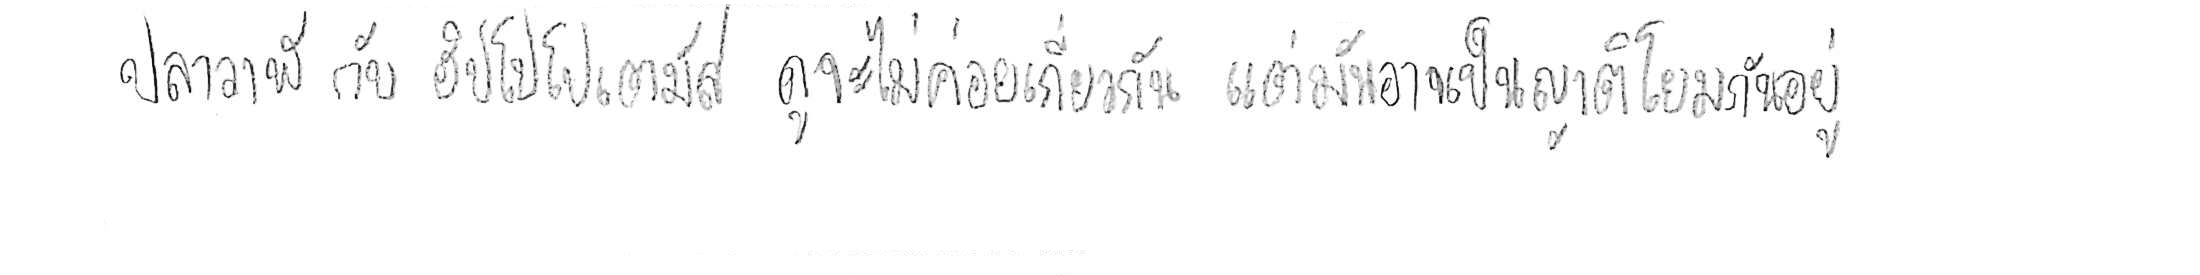 ปลาวาฬ กับ ฮิปโปโปเตามัส ดูจะไม่ค่อยเกี่ยวกัน แต่มันอาจเป็นญาติโยมกันอยู่